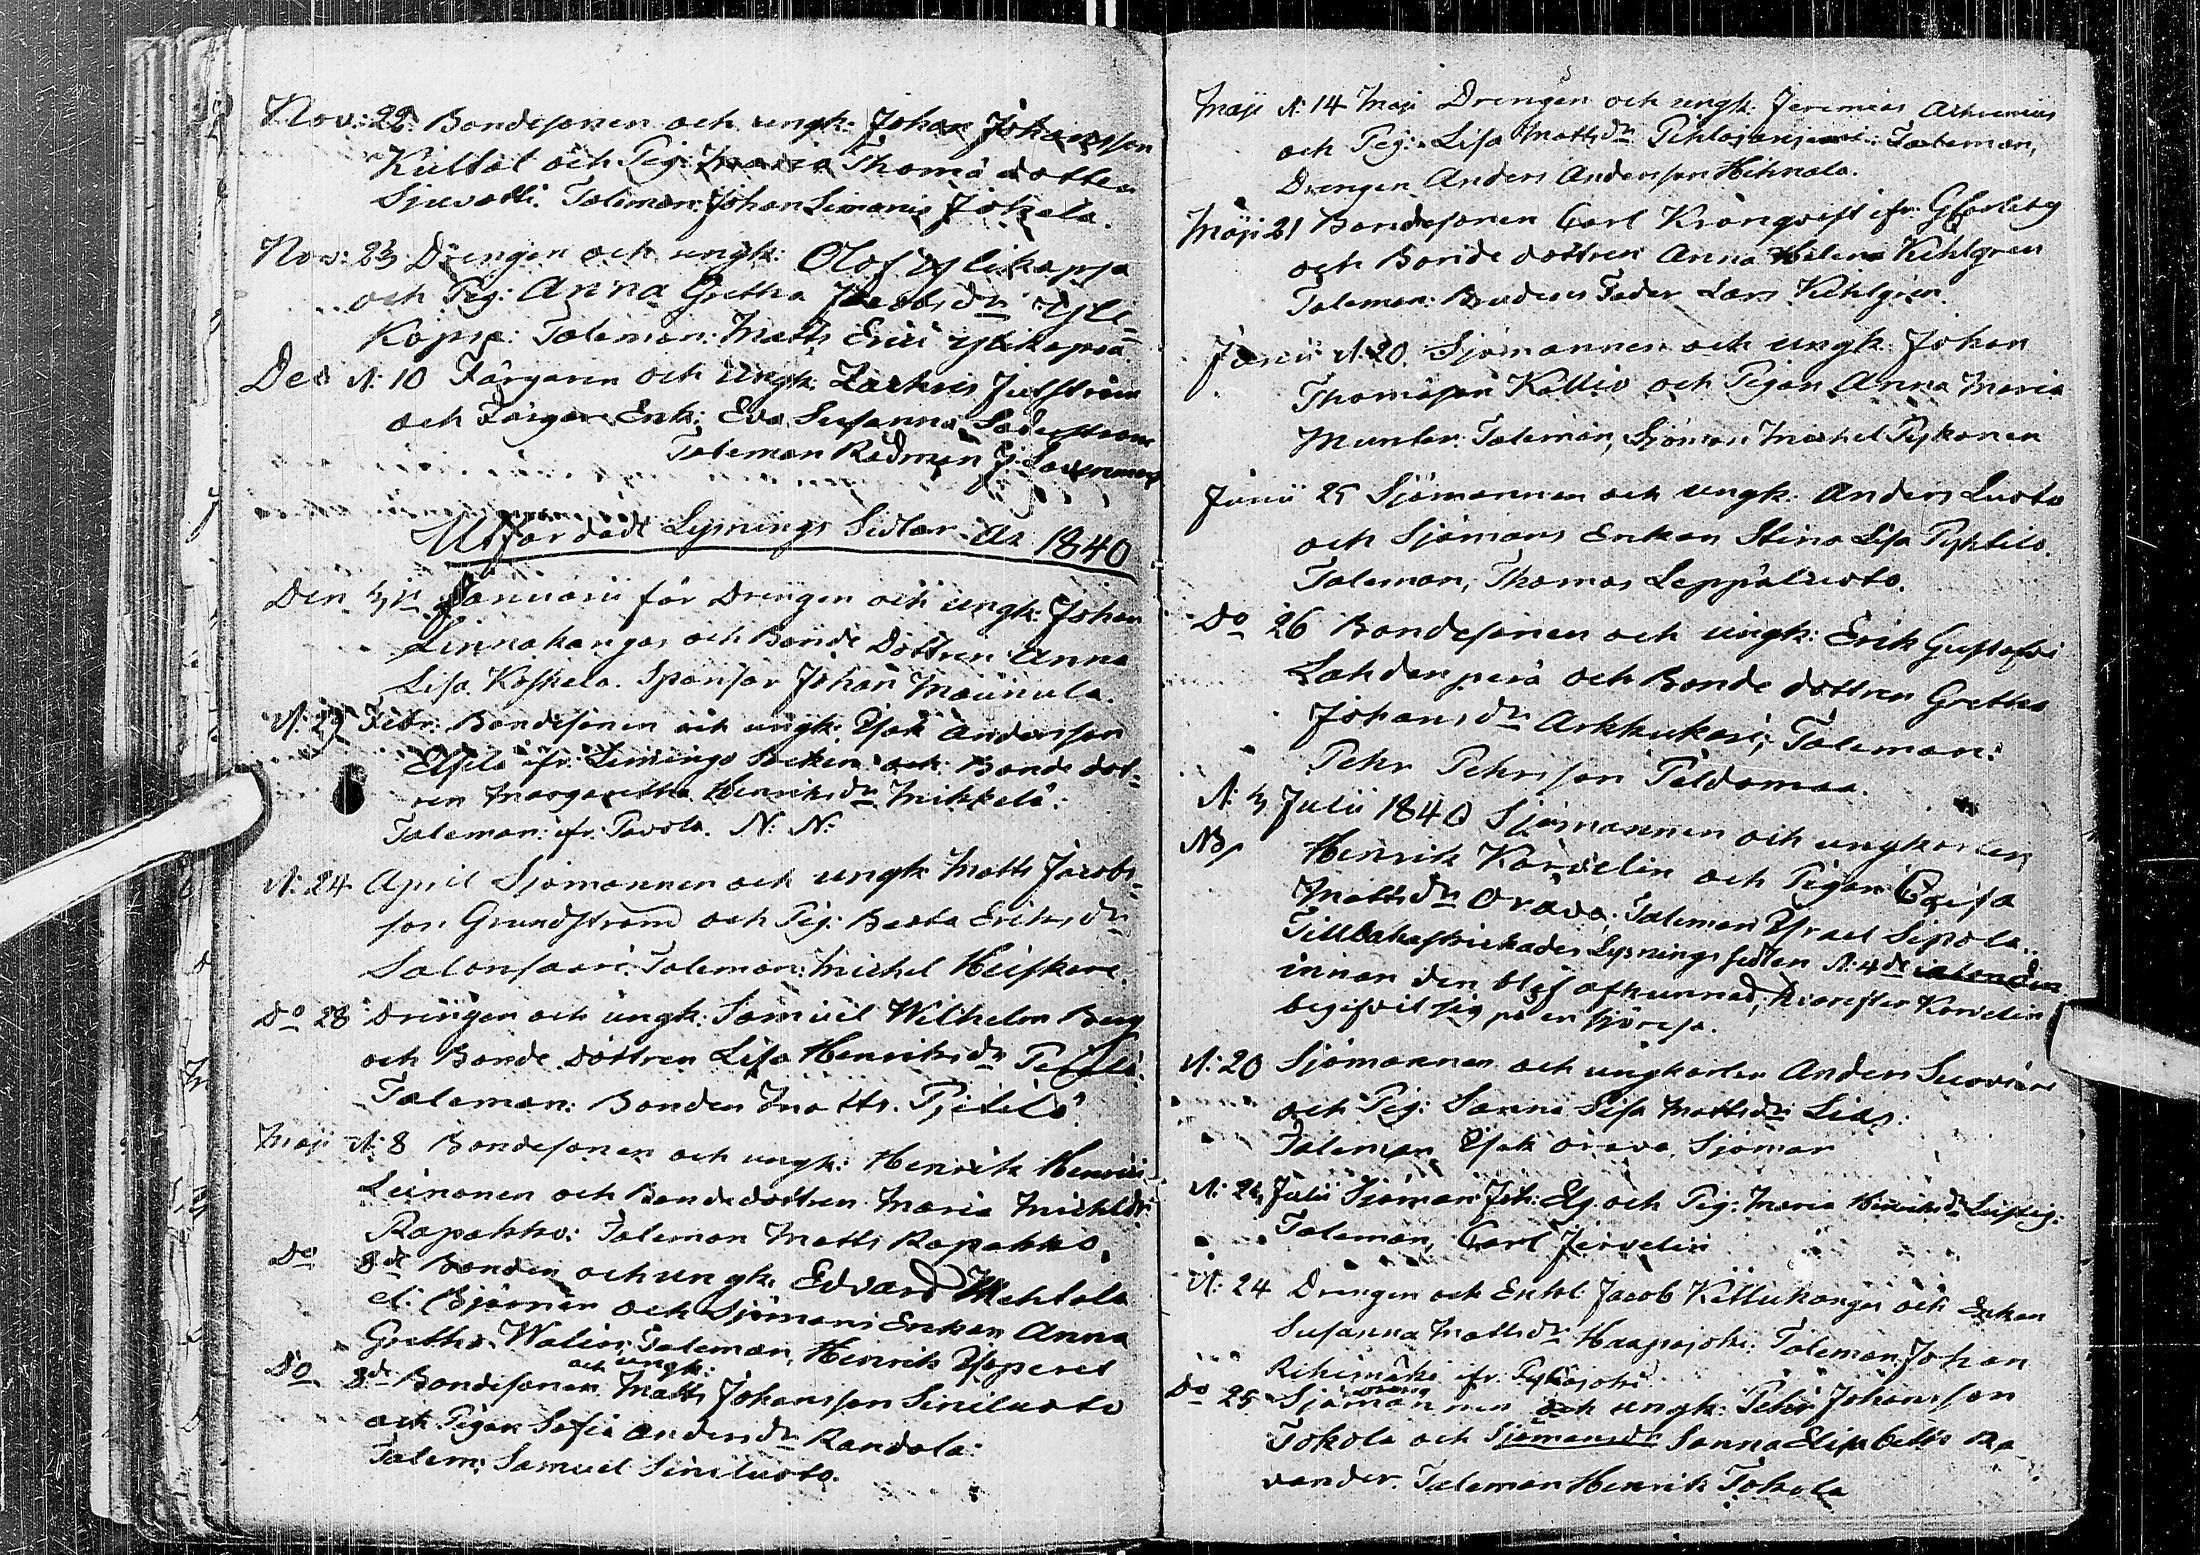 Nov: 22. Bondesonen och ungk: Johan Johansson
Kultal och Pig: Maria Thomä dotter
Sjuvatti. Taleman: Johan Simonis Jokela.
Nov: 23 Drengen och ungk: Olof Ylikapsa
och Pig: Anna Gretha Jacobs dr Yli-
kapsa: Taleman: Matts Erici Ylikapsa.
Dec d: 10 Färgaren och Ungk: Zachris Julström
och Färgare Enk: Eva Susanna Söderström
Taleman Rådman J:
Utfärdade Lysnings Sedlar År 1840
Den Januarii för Drengen och ungk: Johan
Linnakangas och Bonde Dottren Anna
Lisa Koskela. Sponsor Johan Maunula.
d: Febr: Bondesonen och ungk: Isak Andersson
ifr: Limingo Socken och Bonde dot-
ren Margaretha Henriks dr Mikkelä:
Taleman: ifr: Pavola. N: N:
d: 24 April Sjömannen och ungk Matts Jacobs-
son Grundström och Pig: Beata Eriks dr
Salonsaari. Taleman: Michel Heiskari.
Do 28 Drengen och ungk: Samuel Wilhelm Berg
och Bonde dottren Lisa Henriks dr
Taleman: Bonden Matts Pietilä.
Maji d: 8 Bondesonen och ungk: Henrik Henrici
Leinonen och Bondedottren Maria Michls dr
Rapakko: Taleman Matts Rapakko.
Do 8de Bonden och ungk: Edvard Mehtola
el: Björnen och Sjömans Enkan Anna
Gretha Walin, Taleman, Henrik
och ungk:
Do 8de Bondesonen Matts Johansson Siniluoto
och Pigan Sofia Anders dr Randala:
Talem: Samuel Siniluoto.
Maji d: 14 Maji Drengen och ungk: Jeremias
och Pig: Lisa Matts dr Pehlajansaari: Taleman,
Drengen Anders Andersson Hihnala.
Maji 21 Bondesonen Carl Kronqvist ifr: GCarleby
och Bonde dottren Anna Helena Kihlgren
Taleman: Brudens Fader Lars Kihlgren.
Junii d: 20. Sjömannen och ungk: Johan
Thomasson Kallio och Pigan Anna Maria
Munter. Taleman, Sjöman Michel Pykonen
Junii 25 Sjömannen och ungk: Anders Luoto
och Sjömans Enkan Stina Lisa
Taleman, Thomas Leppäluoto.
Do 26 Bondesonen och ungk: Erik Gustafsson
Lahdenperä och Bonde dottren Gretha
Johans dr Arkkukari; Taleman:
Pehr Pehrsson Peldomaa.
d: Julii 1840 Sjömannen och ungkarlen
NB, Henrik Korvelin och Pigan Caisa
Matts dr Orava. Taleman Israel Sipola.
Tillbakaskickades Lysningssedlen d: 4de
innan den blef afkunnad, hvarefter Korvelin
begifvit sig på en sjöresa.
d: 20 Sjömannen och ungkarlen Anders
och Pig: Sanna Lisa Matts dr Lias:
Taleman, Isak Orava, Sjöman
d: Julii Sjöman Joh: Elg och Pig: Maria Henriks dr
Taleman, Carl Jervelin
d: 24 Drengen och Enkl: Jacob Kittukangas och Enkan
Susanna Matts dr Haapajoki: Taleman Johan
Rihimäki ifr: Pyhäjoki
Do 25 Sjömannen och ungk: Pehr Johansson
Tokola och Sjömansdr Sanna Elisabeth Ra
vander. Taleman Henrik Tokola